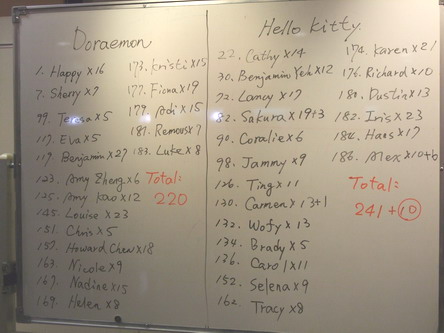 Doraemon
1. Happy x 16
7. Sherry x 7
99. Teresa x 5
117. Eva x 5
119. Benjamin x 27
123. Amy Zheng x 6
125. Amy Kao x 12
145. Louise x 23
151. Chris x 5
157. Howard Chew x 18
163. Nicole x 9
167. Nadine x 15
169. Helen x 8
173. Kristi x 15
177. Fiona x 19
179. Adi x 15
181. Remous x 7
183. Luke x 8
Total:
220
Hello Kitty
22. Cathy x 14
30. Benjamin Yeh x 12
72. Lancy x 17
82. Sakura x 19+3
90. Coralie x 6
98. Jammy x 9
126. Ting x 11
130. Camen x 13+1
132. Wofy x 13
134. Brady x 5
136. Carol x 11
152. Selena x 9
162. Tracy x 8
174. Karen x 21
176. Richard x 10
180. Dustin x 13
182. Iris x 23
184. Hans x 17
186. Alex x 10+6
Total:
241 + 10